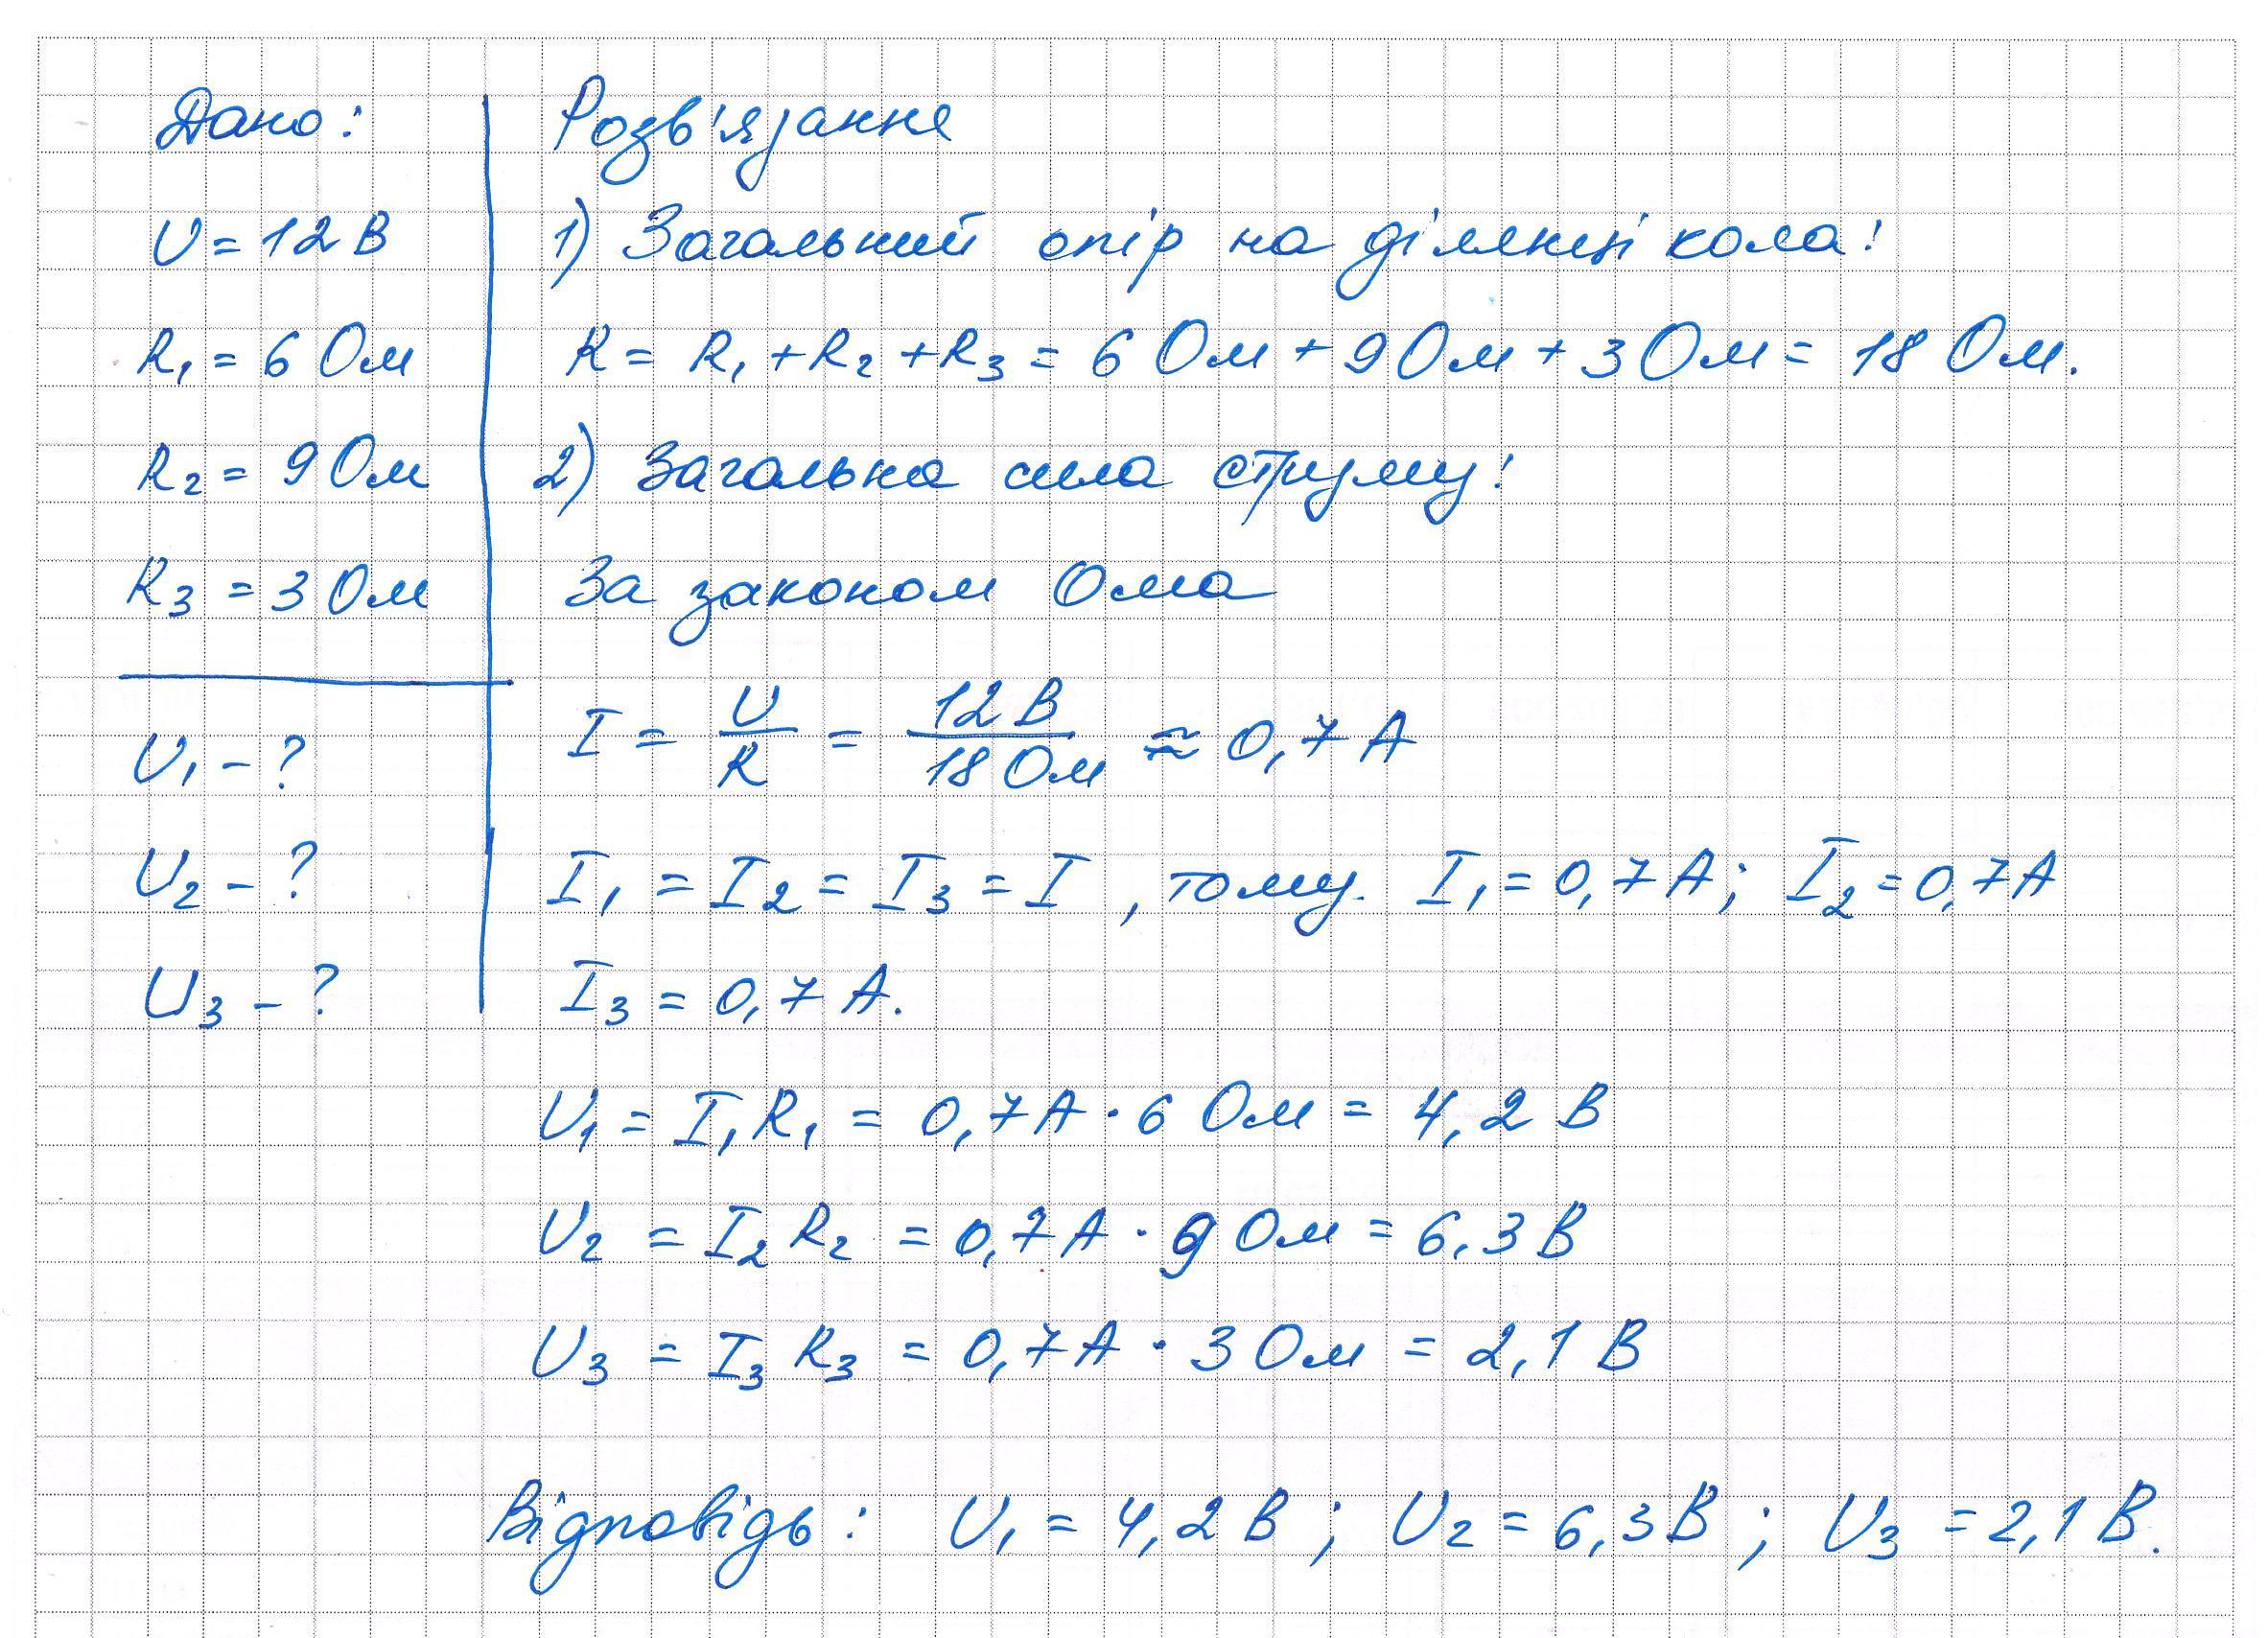 Дано:
U = 12 В
R₁ = 6 Ом
R₂ = 9 Ом
R₃ = 3 Ом
U₁ - ?
U₂ - ?
U₃ - ?
Розв'язання
1) Загальний опір на ділянці кола:
R = R₁ + R₂ + R₃ = 6 Ом + 9 Ом + 3 Ом = 18 Ом.
2) Загальна сила струму:
За законом Ома
I = U/R = 12 В/18 Ом ≈ 0,7 А
I₁ = I₂ = I₃ = I , тому. I₁ = 0,7 А; I₂ = 0,7 А
I₃ = 0,7 А.
U₁ = I₁R₁ = 0,7 А · 6 Ом = 4,2 В
U₂ = I₂R₂ = 0,7 А · 9 Ом = 6,3 В
U₃ = I₃R₃ = 0,7 А · 3 Ом = 2,1 В
Відповідь: U₁ = 4,2 В; U₂ = 6,3 В; U₃ = 2,1 В.